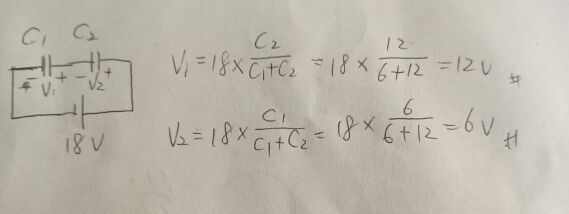 C₁ C₂
- + - +
V₁ V₂
18V
V₁ = 18 × C₂/(C₁+C₂) = 18 × 12/(6+12) = 12V #
V₂ = 18 × C₁/(C₁+C₂) = 18 × 6/(6+12) = 6V #